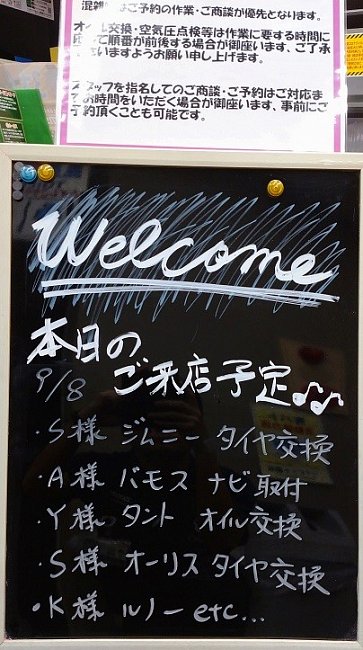 混雑時はご予約の作業・ご商談が優先となります。
オイル交換・空気圧点検等は作業に要する時間に
て順番が前後する場合が御座います、ご了承
いますようお願い申し上げます。
スタッフを指名してのご商談・ご予約はご対応ま
お時間をいただく場合が御座います、事前にご
予約頂くことも可能です。
Welcome
本日の
9/8 ご来店予定♪♪
・S様 ジムニー タイヤ交換
・A様 バモス ナビ取付
・Y様 タント オイル交換
・S様 オーリス タイヤ交換
・K様 ルノー etc...